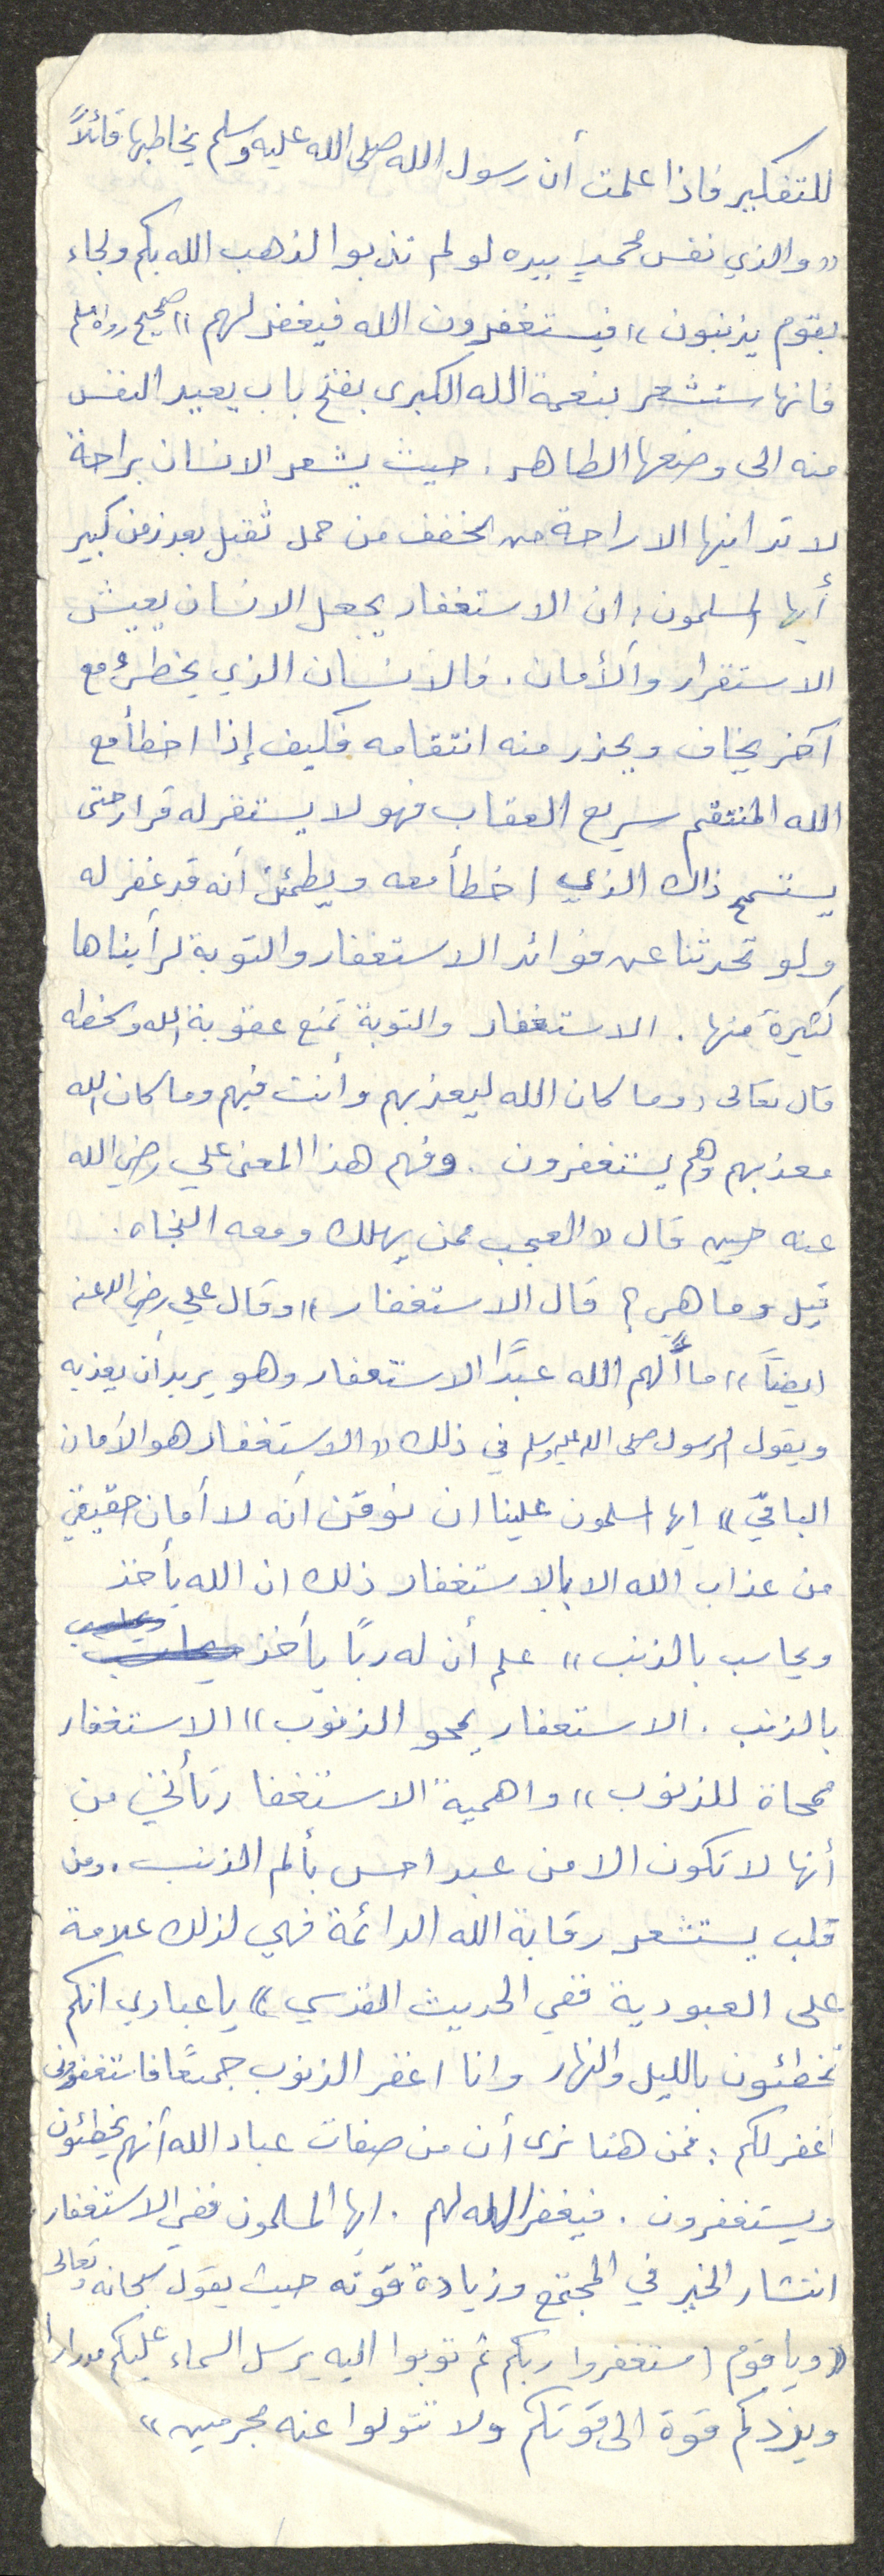 للتفكير فاذا علمت أن رسول الله صلى الله عليه وسلم يخاطبها قائلاً
« والذي نفس محمدٍ بيده لو لم تذنبوا لذهب الله بكم ولجاء
بقوم يذنبون » فيستغفرون الله فيغفر لهم » صحيح رواه مسلم
فانها ستشعر بنعمة الله الكبرى بفتح باب يعيد النفس
منه الى وضعها الطاهر . حيث يشعر الانسان براحة
لا تدانيها الا راحة من تخفف من حمل ثقيل بعد زمن كبير
أيها المسلمون : ان الاستغفار يجعل الانسان يعيش
الاستقرار والأمان . فالانسان الذي يخطئ مع
آخر يخاف ويحذر منه انتقامه فكيف إذا اخطأ مع
الله المنتقم سريع العقاب فهو لا يستقر له قرار حتى
يستسمح ذاك الذي اخطأ معه ويطمئن أنه قد غفر له
ولو تحدثنا عن فوائد الاستغفار والتوبة لرأيناها
كثيرة منها . الاستغفار والتوبة تمنع عقوبة الله وسخطه
قال تعالى : وما كان الله ليعذبهم وأنت فيهم وما كان الله
معذبهم وهم يستغفرون . وفهم هذا المعنى علي رضي الله
عنه حين قال « العجب ممن يهلك ومعه النجاه .
قيل وما هي ؟ قال الاستغفار » وقال علي رضي الله عنه
ايضاً » ما ألهم الله عبدًا الاستغفار وهو يريد أن يعذبه
ويقول الرسول صلى الله عليه وسلم في ذلك « الاستغفار هو الأمان
الباقي » ايها المسلمون علينا ان نوقن أنه لا أمان حقيقي
من عذاب الله الا بالاستغفار ذلك ان الله يأخذ
ويحاسب بالذنب » علم أن له ربًا يأخذ
بالذنب . الاستغفار يمحو الذنوب » الاستغفار
ممحاة للذنوب » واهمية الاستغفار تأتي من
أنها لا تكون الا من عبد احس بألم الذنب . ومن
قلب يستشعر رقابة الله الدائمة فهي لذلك علامة
على العبودية ففي الحديث القدسي » يا عبادي انكم
تخطئون بالليل والنهار وانا اغفر الذنوب جميعًا فاستغفروني
اغفر لكم : فمن هنا نرى أن من صفات عباد الله أنهم يخطئون
ويستغفرون . فيغفر الله لهم . ايها المسلمون ففي الاستغفار
انتشار الخير في المجتمع وزيادة قوته حيث يقول سبحانه وتعالى
« ويا قوم استغفروا ربكم ثم توبوا اليه يرسل السماء عليكم مدرارا
ويزدكم قوة الى قوتكم ولا تتولوا عنه مجرمين »